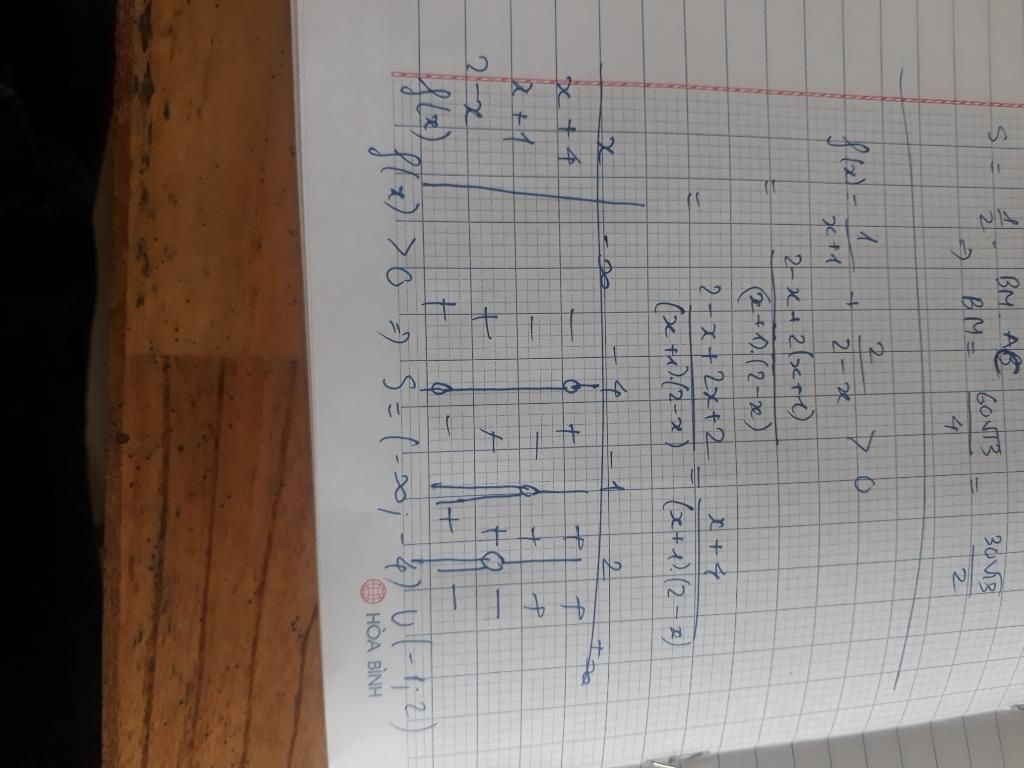 S = 1/2 . BM. AC
=> BM = 60√13/4 = 30√13/2
f(x) = 1/(x+1) + 2/(2-x) > 0
= (2-x+2(x+1))/((x+1).(2-x))
= (2-x+2x+2)/((x+1)(2-x)) = (x+4)/((x+1)(2-x))
x -∞ -4 -1 2 +∞
x+4 - 0 + + +
x+1 - - 0 + +
2-x + + + 0 -
f(x) + 0 - || + || -
f(x) > 0 => S = (-∞; -4) ∪ (-1; 2)
HÒA BÌNH